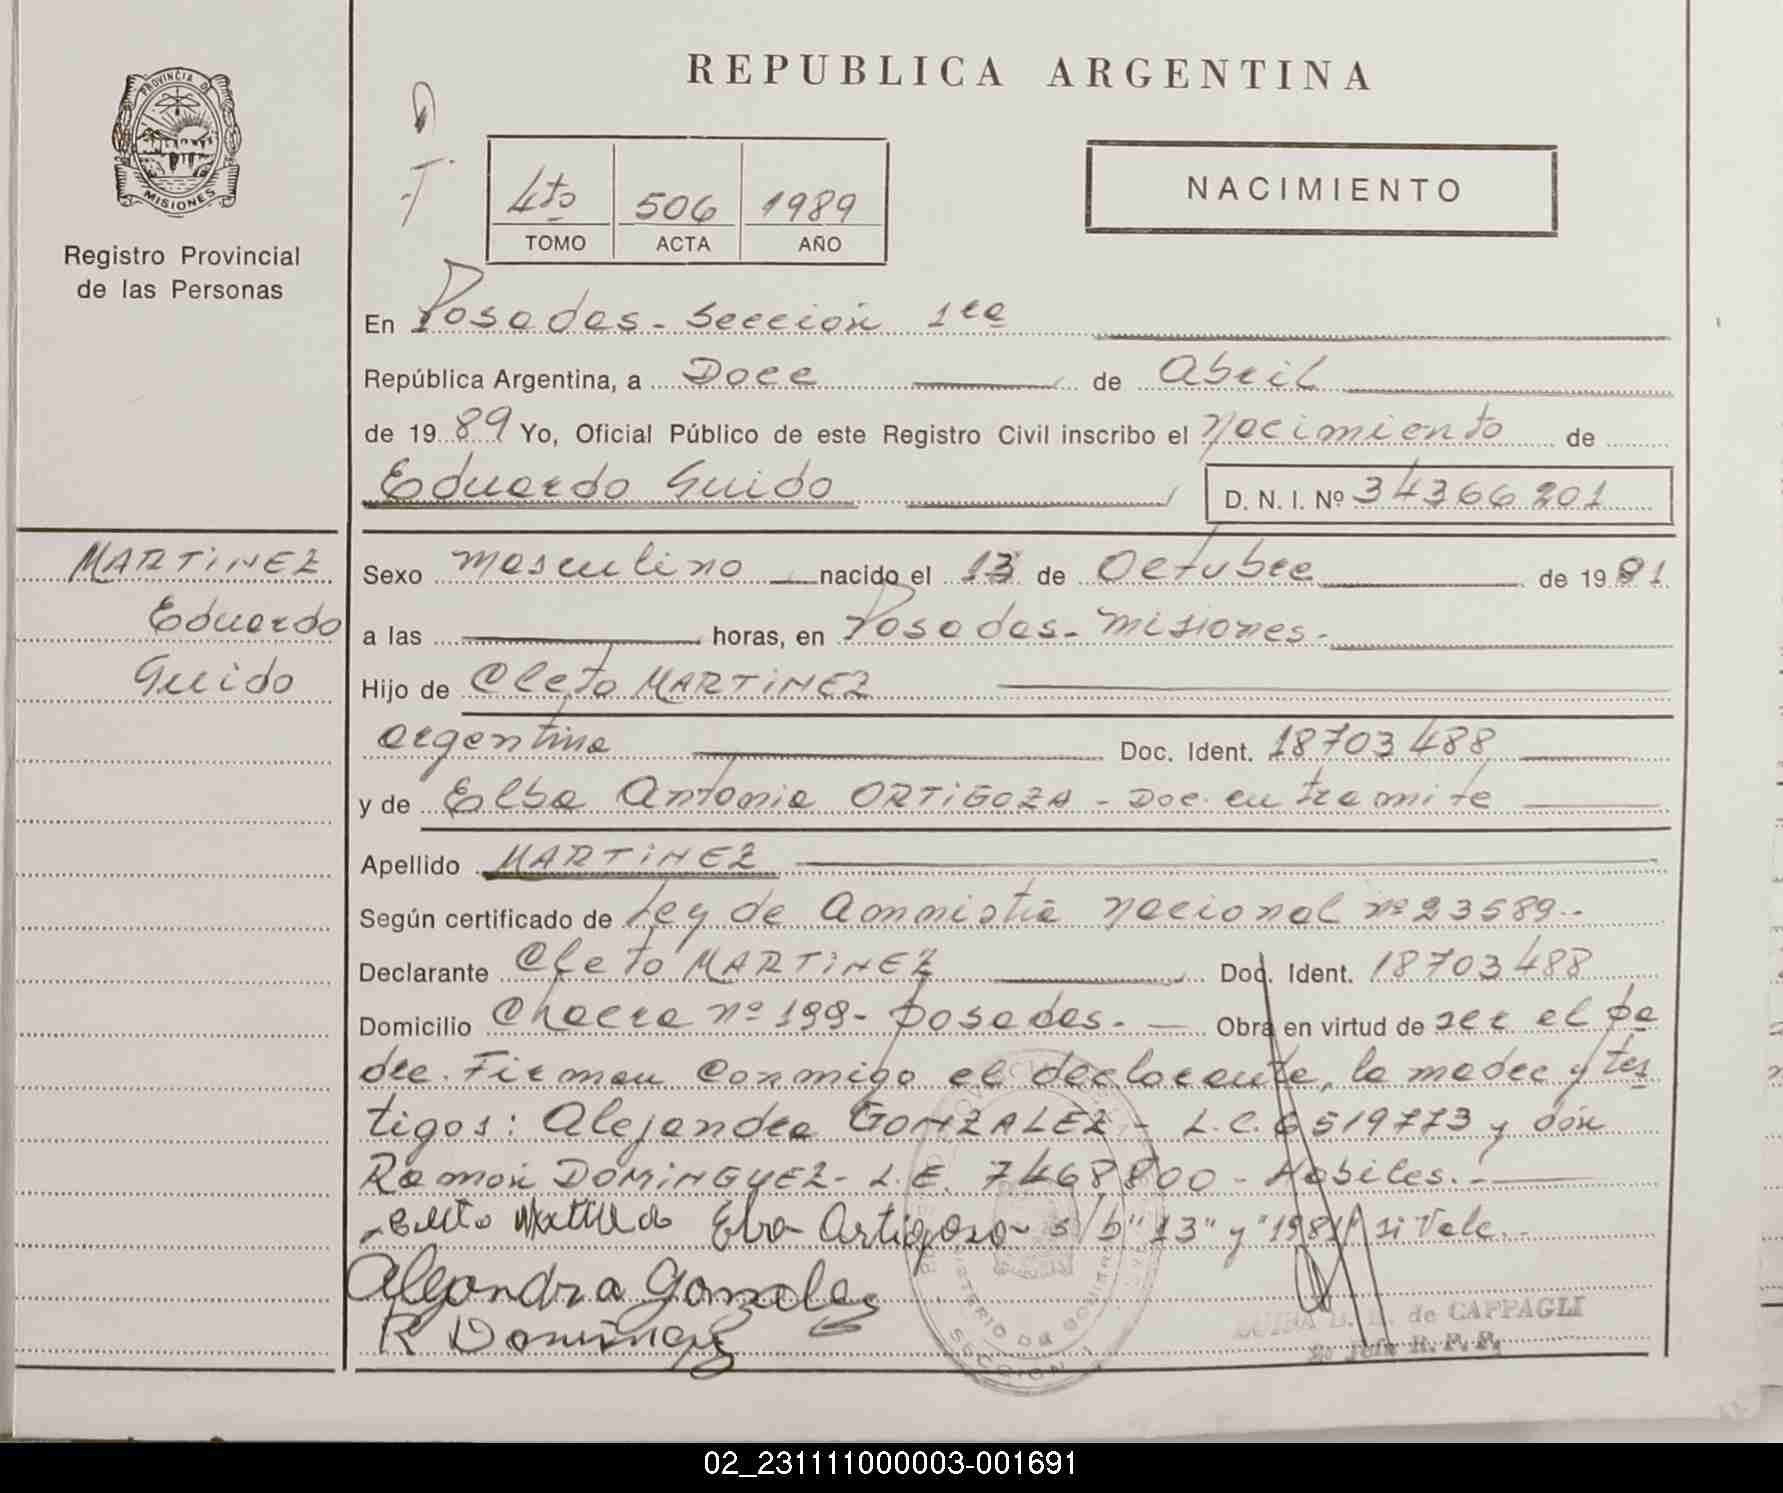 REPUBLICA ARGENTINA
PROVINCIA DE
MISIONES
Registro Provincial
de las Personas
4to 506 1989
TOMO ACTA AÑO
NACIMIENTO
En Posadas - Sección 1ra
República Argentina, a Doce de Abril
de 1989 Yo, Oficial Público de este Registro Civil inscribo el Nacimiento de
Eduardo Guido D. N. I. Nº 34366201
MARTINEZ
Eduardo
Guido
Sexo masculino nacido el 13 de Octubre de 1981
a las horas, en Posadas - Misiones.
Hijo de Cleto MARTINEZ
argentina Doc. Ident. 18703488
y de Elba Antonia ORTIGOZA - Doc. en tramite
Apellido MARTINEZ
Según certificado de Ley de Amnistia Nacional nº 23589.-
Declarante Cleto MARTINEZ Doc. Ident. 18703488
Domicilio Chacra nº 199 - Posadas. - Obra en virtud de ser el pa
dre. Firman conmigo el declarante, la madre y tes
tigos: Alejandra GONZALEZ - L.C. 6519773 y don
Ramon DOMINGUEZ - L.E. 7468800 - Habiles. -
Elba Ortigoza s/b "13" y "1981" si Vale.-
Alejandra Gonzalez
R Dominguez
de CAPPAGLI
SECCION 1
02_231111000003-001691